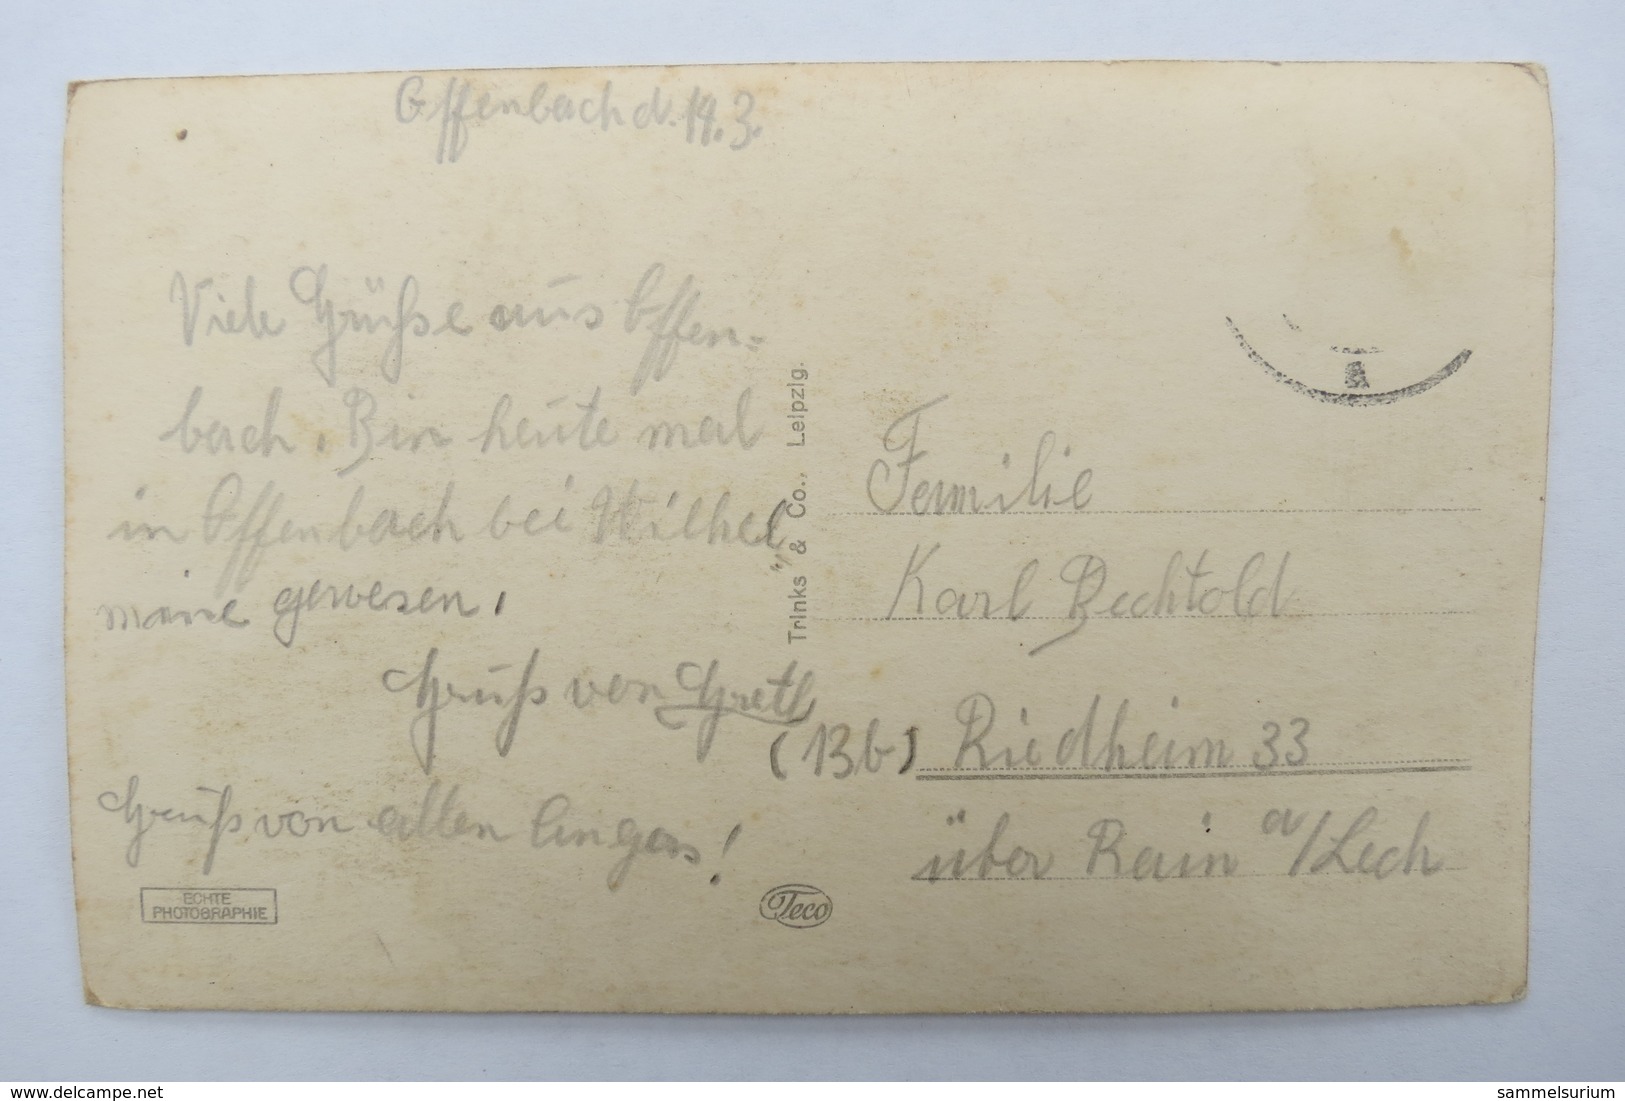 Offenbach d. 14.3.
Viele Grüße aus Offen-
bach. Bin heute mal
in Offenbach bei Wilhel
mine gewesen.
Gruß von Gretl
Gruß von allen
Trinks & Co., Leipzig.
Familie
Karl Bechtold
(13b) Riedheim 33
über Rain a/Lech
ECHTE
PHOTOGRAPHIE
Teco
www.delcampe.net
sammelsurium